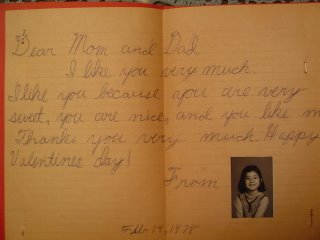 Dear Mom and Dad,
I like you very much.
I like you because you are very
sweet, you are nice, and you like m
Thank you very much Happy
Valentines day!
From
Feb 14, 1978